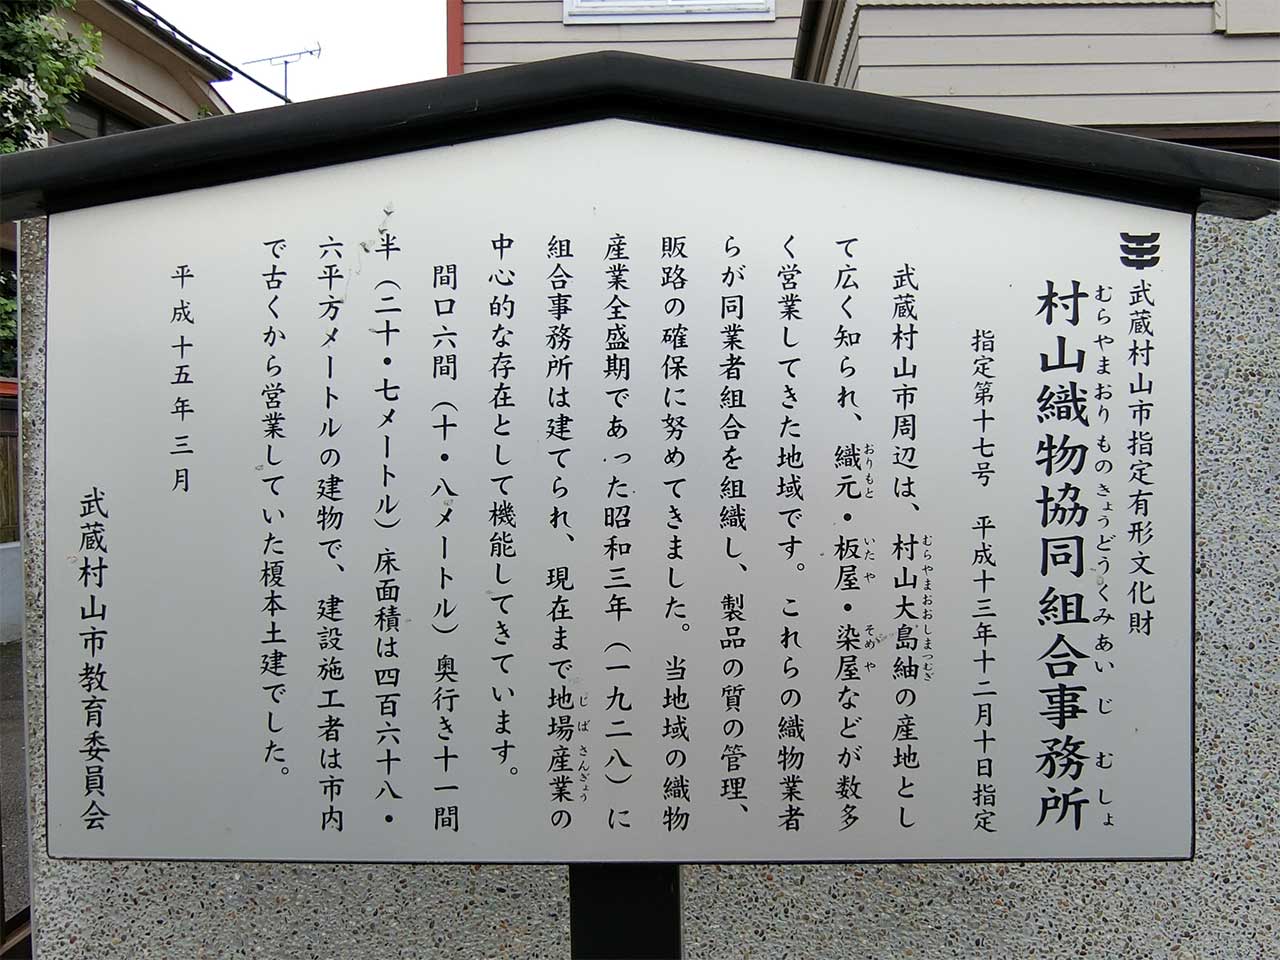 武蔵村山市指定有形文化財
むらやまおりものきょうどうくみあいじむしょ
村山織物協同組合事務所
指定第十七号　平成十三年十二月十日指定
むらやまおおしまつむぎ
武蔵村山市周辺は、村山大島紬の産地とし
おりもと いたや そめや
て広く知られ、織元・板屋・染屋などが数多
く営業してきた地域です。これらの織物業者
らが同業者組合を組織し、製品の質の管理、
販路の確保に努めてきました。当地域の織物
産業全盛期であった昭和三年（一九二八）に
じばさんぎょう
組合事務所は建てられ、現在まで地場産業の
中心的な存在として機能してきています。
間口六間（十・八メートル）奥行き十一間
半（二十・七メートル）床面積は四百六十八・
六平方メートルの建物で、建設施工者は市内
で古くから営業していた榎本土建でした。
平成十五年三月
武蔵村山市教育委員会